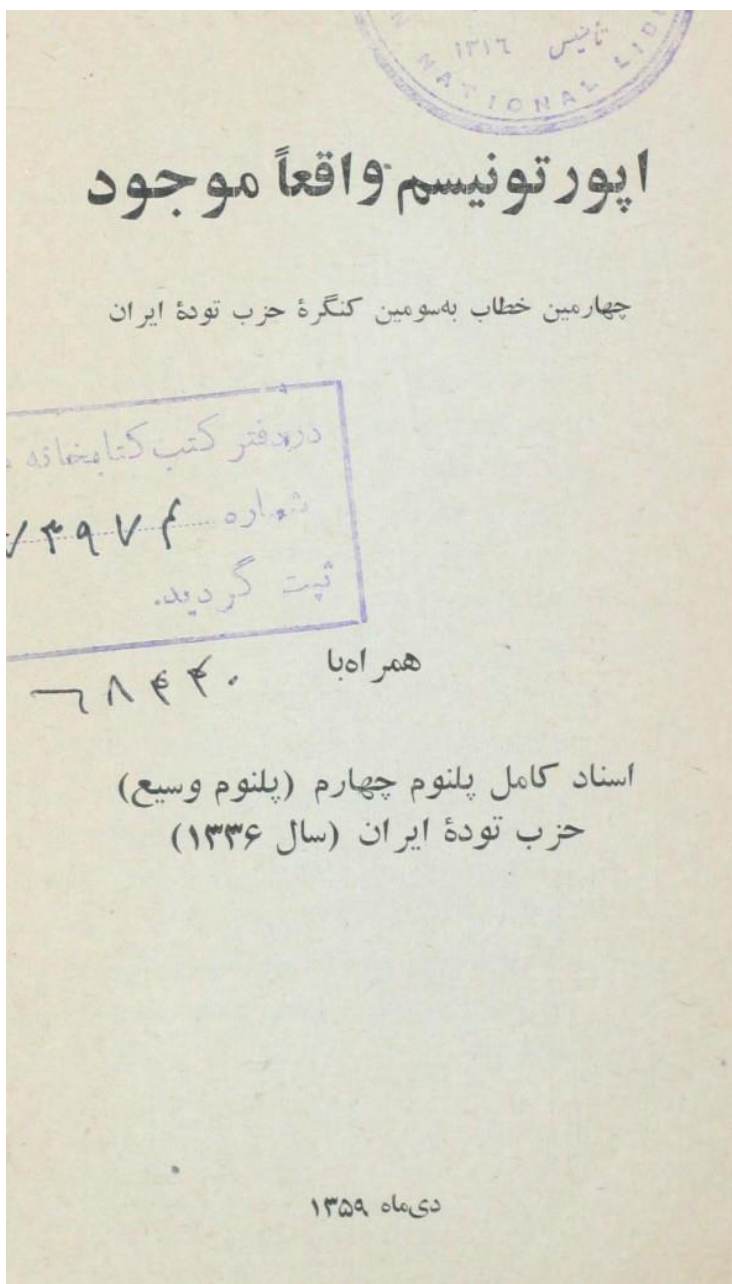 تأسیس
۱۳۱۶
N NATIONAL LIB
اپورتونیسم واقعاً موجود
چهارمین خطاب به‌سومین کنگرهٔ حزب تودهٔ ایران
دردفتر کتب کتابخانه
شماره
ثبت گردید.
۶۸۴۴۰
همراه‌با
اسناد کامل پلنوم چهارم (پلنوم وسیع)
حزب تودهٔ ایران (سال ۱۳۳۶)
دی‌ماه ۱۳۵۹